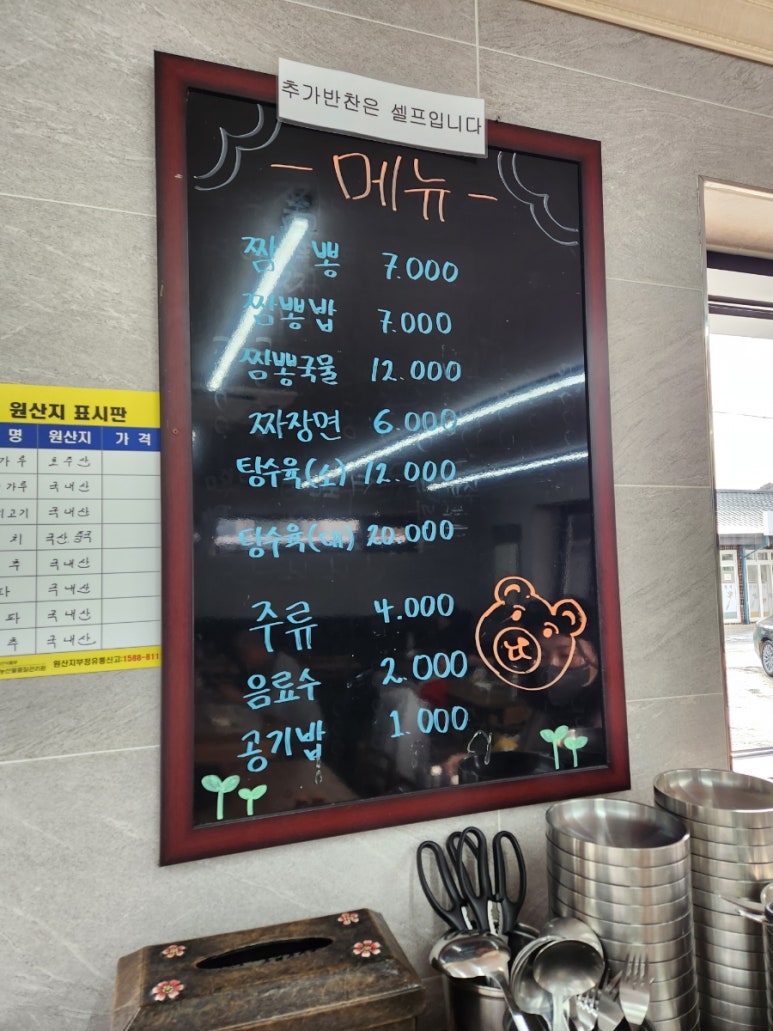 추가반찬은 셀프입니다
- 메뉴 -
짬 뽕 7.000
짬뽕밥 7.000
짬뽕국물 12.000
짜장면 6.000
탕수육(소) 12.000
탕수육(대) 20.000
주류 4.000
음료수 2.000
공기밥 1.000
원산지 표시판
명 원산지 가 격
가루 호주산
가루 국내산
고기 국내산
치 국산
추 국내산
파 국내산
파 국내산
추 국내산
원산지부정유통신고:1588-811